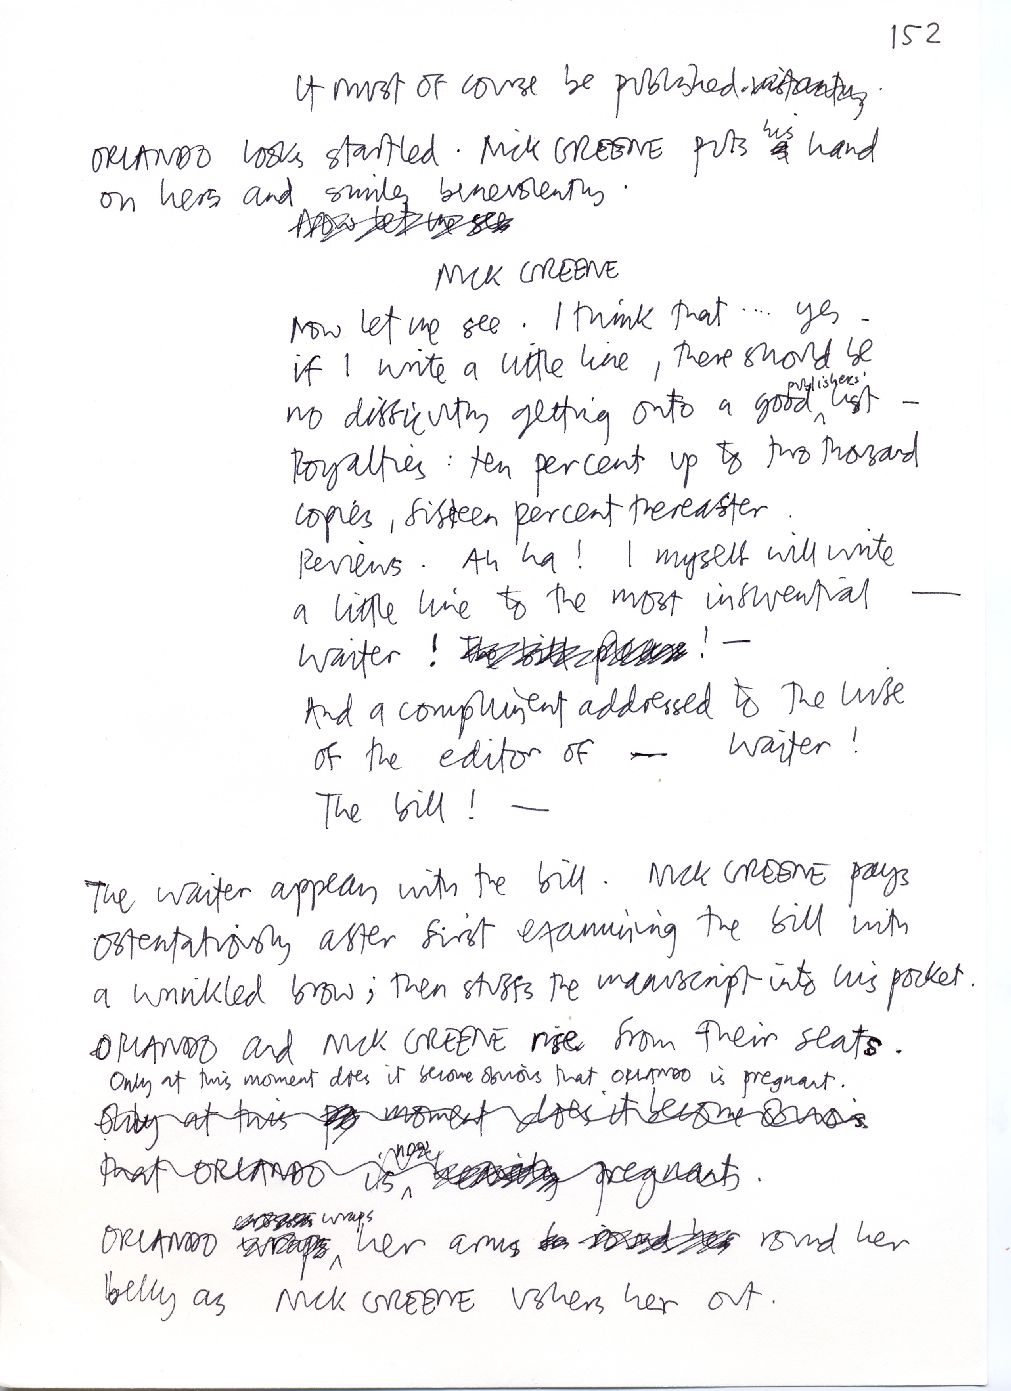 152
It must of course be published. instantly.
ORLANDO looks startled. NICK GREENE puts his hand
on hers and smiles benevolently.
Now let me see
NICK GREENE
Now let me see. I think that .... yes -
if I write a little line, there should be
no difficulty getting onto a good publishers' list -
Royalties: ten percent up to two thousand
copies, fifteen percent thereafter.
Reviews. Ah ha! I myself will write
a little line to the most influential —
Waiter! The bill please! —
And a compliment addressed to the wife
of the editor of — Waiter!
The bill! —
The waiter appears with the bill. NICK GREENE pays
ostentatiously after first examining the bill with
a wrinkled brow; then stuffs the manuscript into his pocket.
ORLANDO and NICK GREENE rise from their seats.
Only at this moment does it become obvious that ORLANDO is pregnant.
Only at this moment does it become obvious
that ORLANDO is now heavily pregnant.
ORLANDO wraps wraps her arms round her round her
belly as NICK GREENE ushers her out.